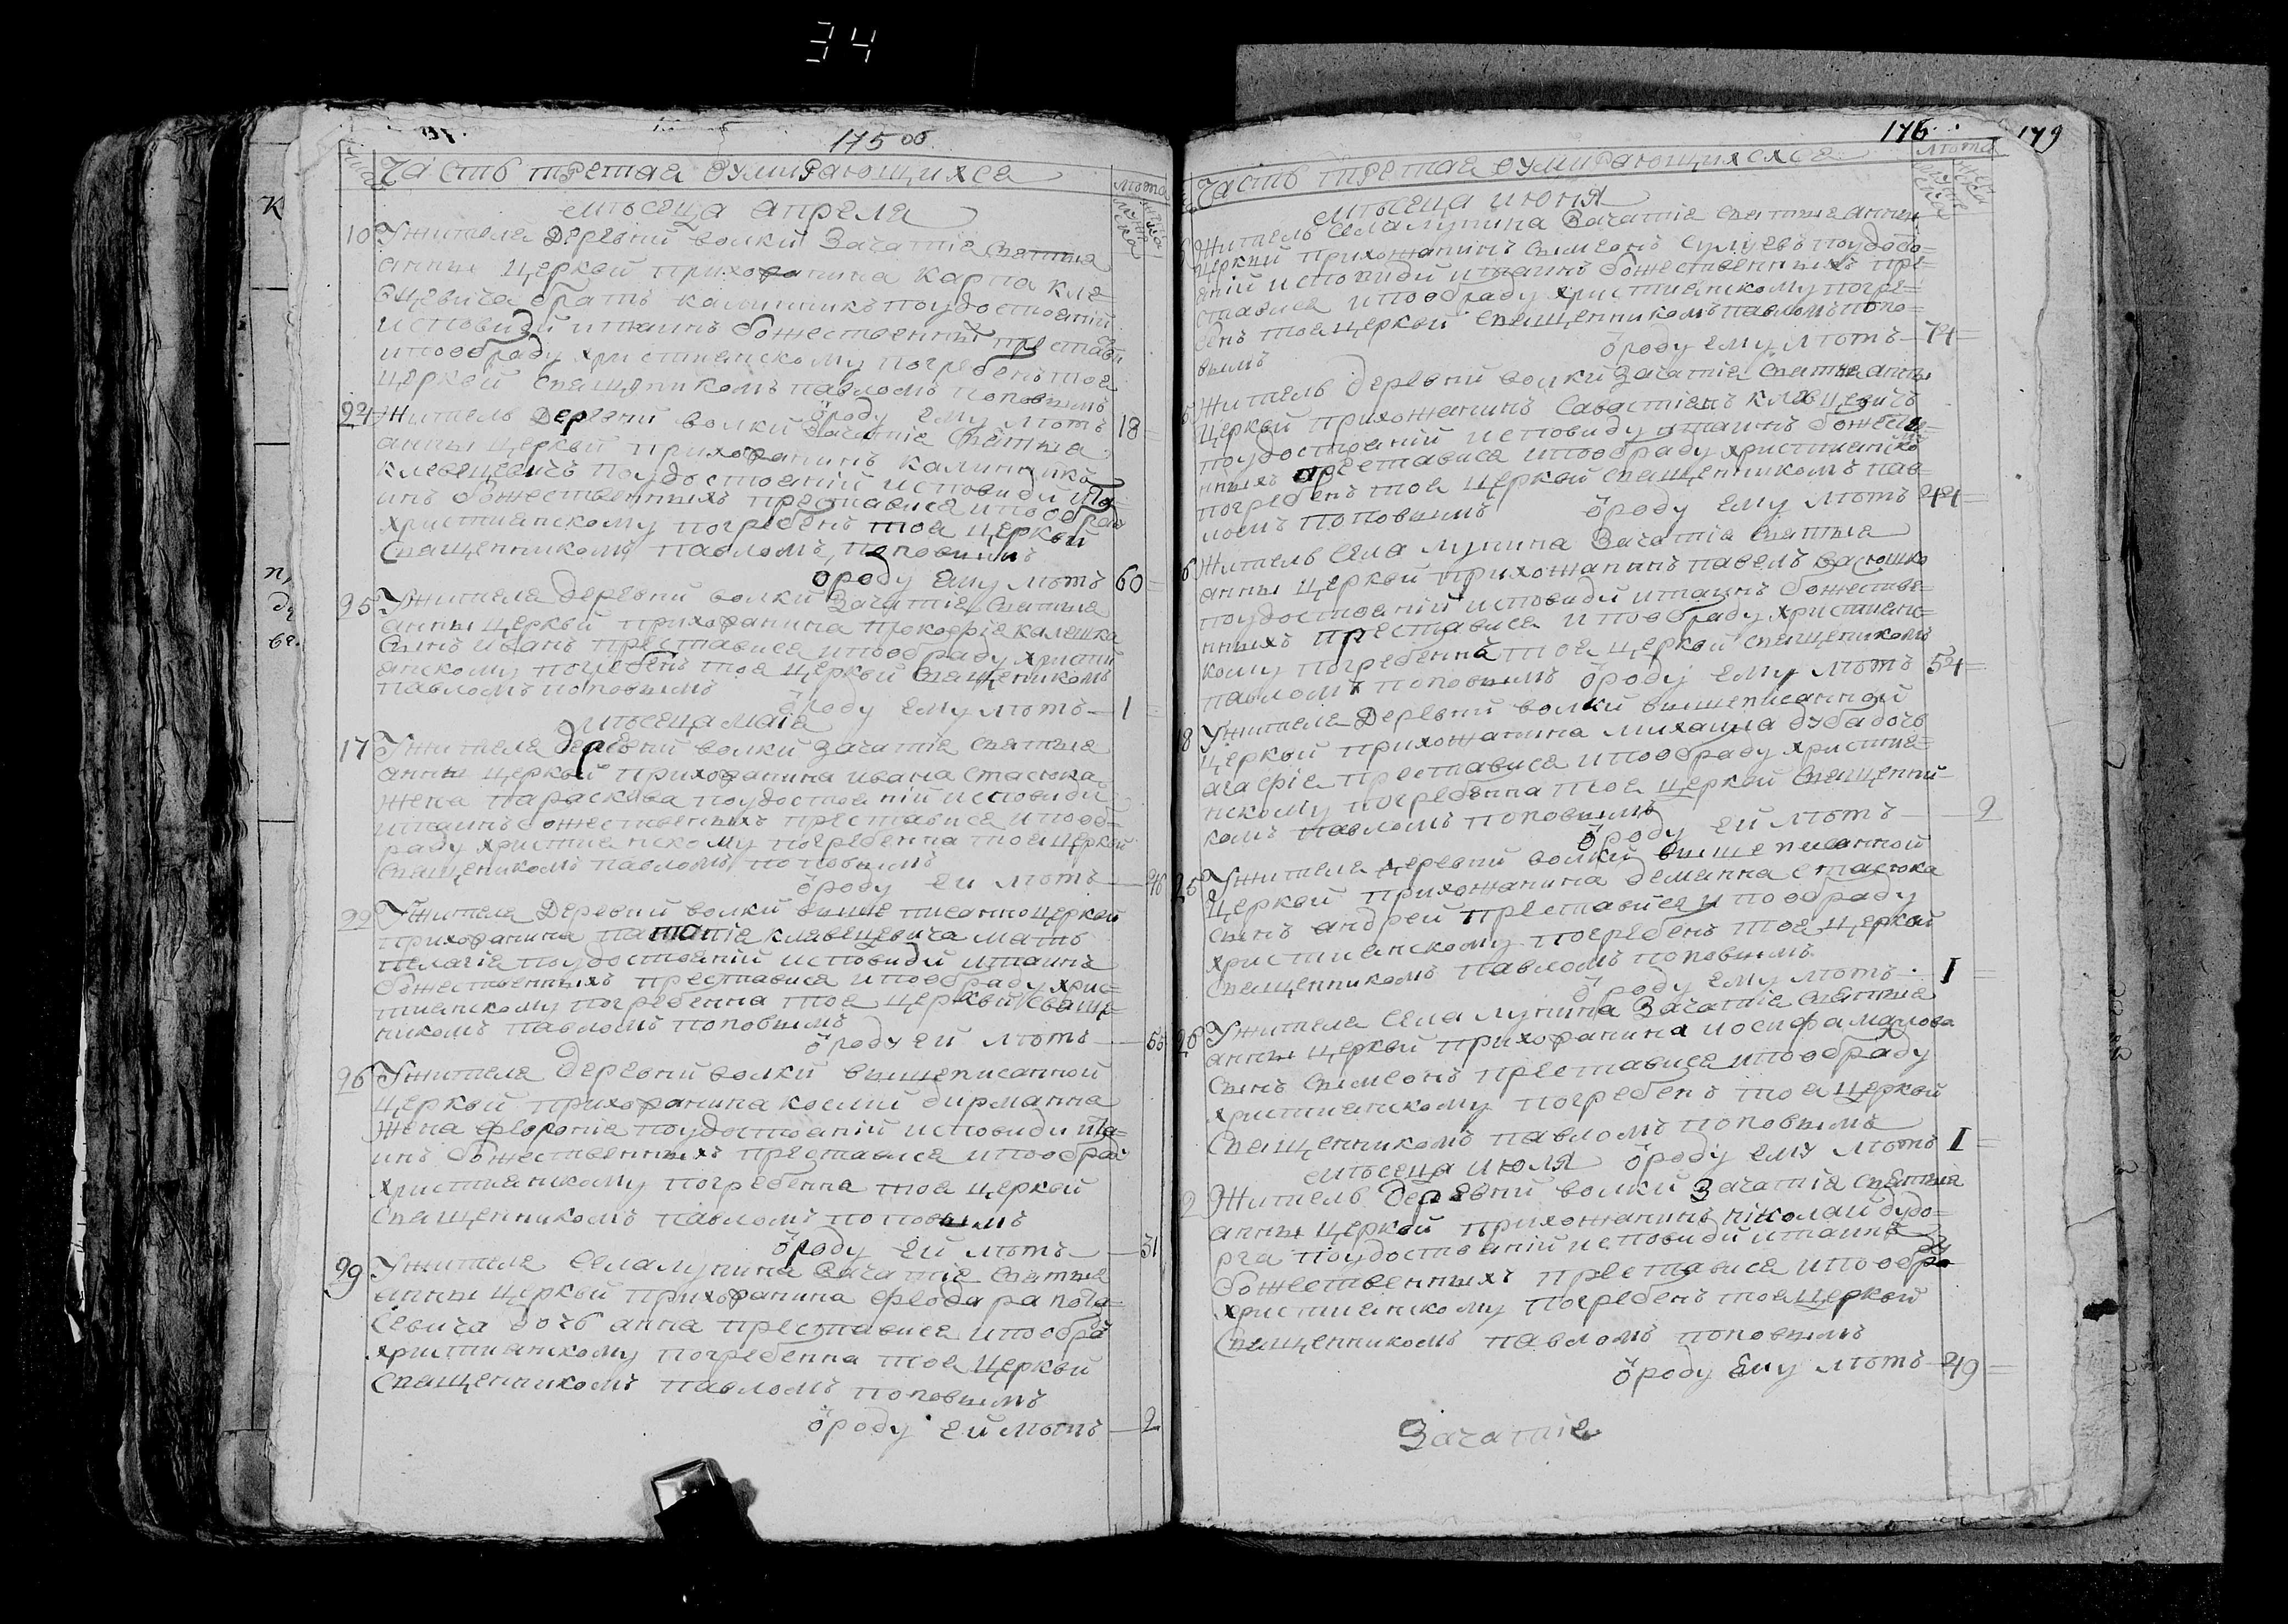 34
175 об
Часть третая оумирающихся
лѣта
мѣсеца апреля
10 Ужителя деревни волки Зачатıе святыя
анны церквй прихожанина карпа кле=
вцевича братъ калинникъ поудостоенıй
исповиди итаинъ божественныхъ престави
ипообраду христианскому погребенъ тоя
церквй священикомъ павломъ поповымъ
ѿроду ему лѣтъ 18
24 Житель деревни волки Зачатıе святыя
анны церквй прихожанинъ калинникъ
клевецевичъ поудостоенıй исповиди ита=
инъ божественныхъ преставися ипообраду
христианскому погребенъ тоя церквй
священникомъ павломъ поповымъ
ѿроду ему лѣтъ 60
25 Ужителя деревни волки Зачатıе святыя
анны церквй прихожанина прокофıя калешка
сынъ иванъ преставися ипообраду христи
анскому погребенъ тоя церквй священикомъ
павломъ поповымъ
ѿроду ему лѣтъ 1
мѣсеца маıя
17 Ужителя деревни волки Зачатıе святыя
анны церквй прихожанина ивана стасюка
жена параскева поудостоенıй исповиди
итаинъ божественныхъ преставися ипооб=
раду христианскому погребенна тоя церквй
священикомъ павломъ поповымъ
ѿроду ей лѣтъ 46
22 Ужителя деревни волки выше писанно церквй
прихожанина потапıя клевецевича мать
пелагıя поудостоенıй исповиди итаинъ
божественныхъ преставися ипообраду хрис=
тианскому погребенна тоя церквй свяще=
никомъ павломъ поповымъ
ѿроду ей лѣтъ 55
26 Ужителя деревни волки вышеписанной
церквй прихожанина космıи дирманна
жена феврония поудостоенıй исповиди ита=
инъ божественныхъ преставися ипообрад
христианскому погребенна тоя церквй
священникомъ павломъ поповымъ
ѿроду ей лѣтъ 31
29 Ужителя села лунина Зачатıе святыя
анны церквй прихожанина феодара пота=
севича дочь анна преставися ипообра
христианскому погребенна тоя церквй
священникомъ павломъ поповымъ
ѿроду ей лѣтъ 2
176
179
Часть третая оумирающихся
лѣта
мѣсеца июня
Житель села лунина Зачатıе святыя анны
церквй прихожанинъ сымеонъ поудосто=
енıй исповиди итаинъ божественныхъ пре=
ставися ипообраду христианскому погре=
бенъ тоя церквй священникомъ павломъ попо=
вымъ ѿроду ему лѣтъ 74
5 Житель деревни волки Зачатıе святыя анны
церквй прихожанинъ савастıянъ клевцевичъ
поудостоенıй исповиду итаинъ божестве=
нныхъ преставися ипообраду христианско
погребенъ тоя церквй священникомъ пав=
ломъ поповымъ ѿроду ему лѣтъ 44
6 Житель села лунина Зачатıе святыя
анны церквй прихожанинъ павелъ
поудостоенıй исповиди итаинъ божестве=
нныхъ преставися ипообраду христианс=
кому погребеннъ тоя церквй священикомъ
павломъ поповымъ ѿроду ему лѣтъ 54
8 Ужителя деревни волки вышеписанной
церквй прихожанина михаила дуба дочь
агафıя преставися ипообраду христиа=
нскому погребенна тоя церквй священни
комъ павломъ поповымъ
ѿроду ей лѣтъ 2
25 Ужителя деревни волки выше писанной
церквй прихожанина демянна стасюка
сынъ андрей преставися ипообраду
христианскому погребенъ тоя церквй
священникомъ павломъ поповымъ
ѿроду ему лѣтъ 1
26 Ужителя села лунина Зачатıе святыя
анны церквй прихожанина иосифа малова
сынъ сымеонъ преставися ипообраду
христианскому погребенъ тоя церквй
священникомъ павломъ поповымъ
мѣсеца июля ѿроду ему лѣтъ 1
2 Житель деревни волки Зачатıе святыя
анны церквй прихожанинъ николай дудо=
рга поудостоенıй исповиди итаинъ
божественныхъ преставися ипообра
христианскому погребенъ тоя церквй
священникомъ павломъ поповымъ
ѿроду ему лѣтъ 49
Зачатıе